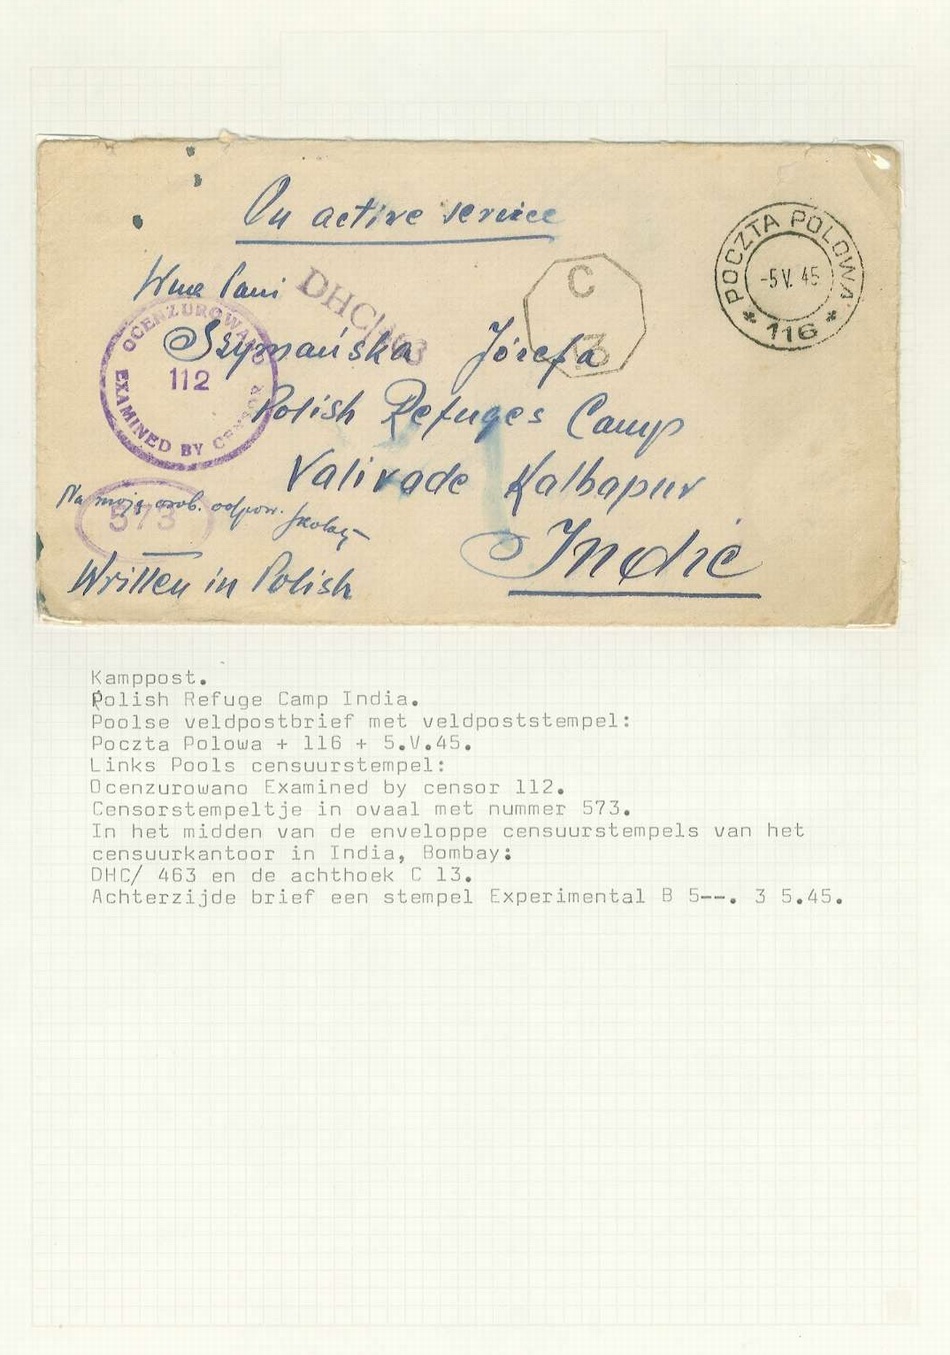 On active service
POCZTA POLOWA
-5 V. 45
* 116 *
C
3
Wna Pani
DHC/ 63
OCENZUROWANO
112
EXAMINED BY CENSOR
Szymańska Józefa
Polish Refuges Camp
Valivade Kalbapur
Na moją osob. odpow.
573
Indie
Written in Polish
Kamppost.
Polish Refuge Camp India.
Poolse veldpostbrief met veldpoststempel:
Poczta Polowa + 116 + 5.V.45.
Links Pools censuurstempel:
Ocenzurowano Examined by censor 112.
Censorstempeltje in ovaal met nummer 573.
In het midden van de enveloppe censuurstempels van het
censuurkantoor in India, Bombay:
DHC/ 463 en de achthoek C 13.
Achterzijde brief een stempel Experimental B 5--. 3 5.45.